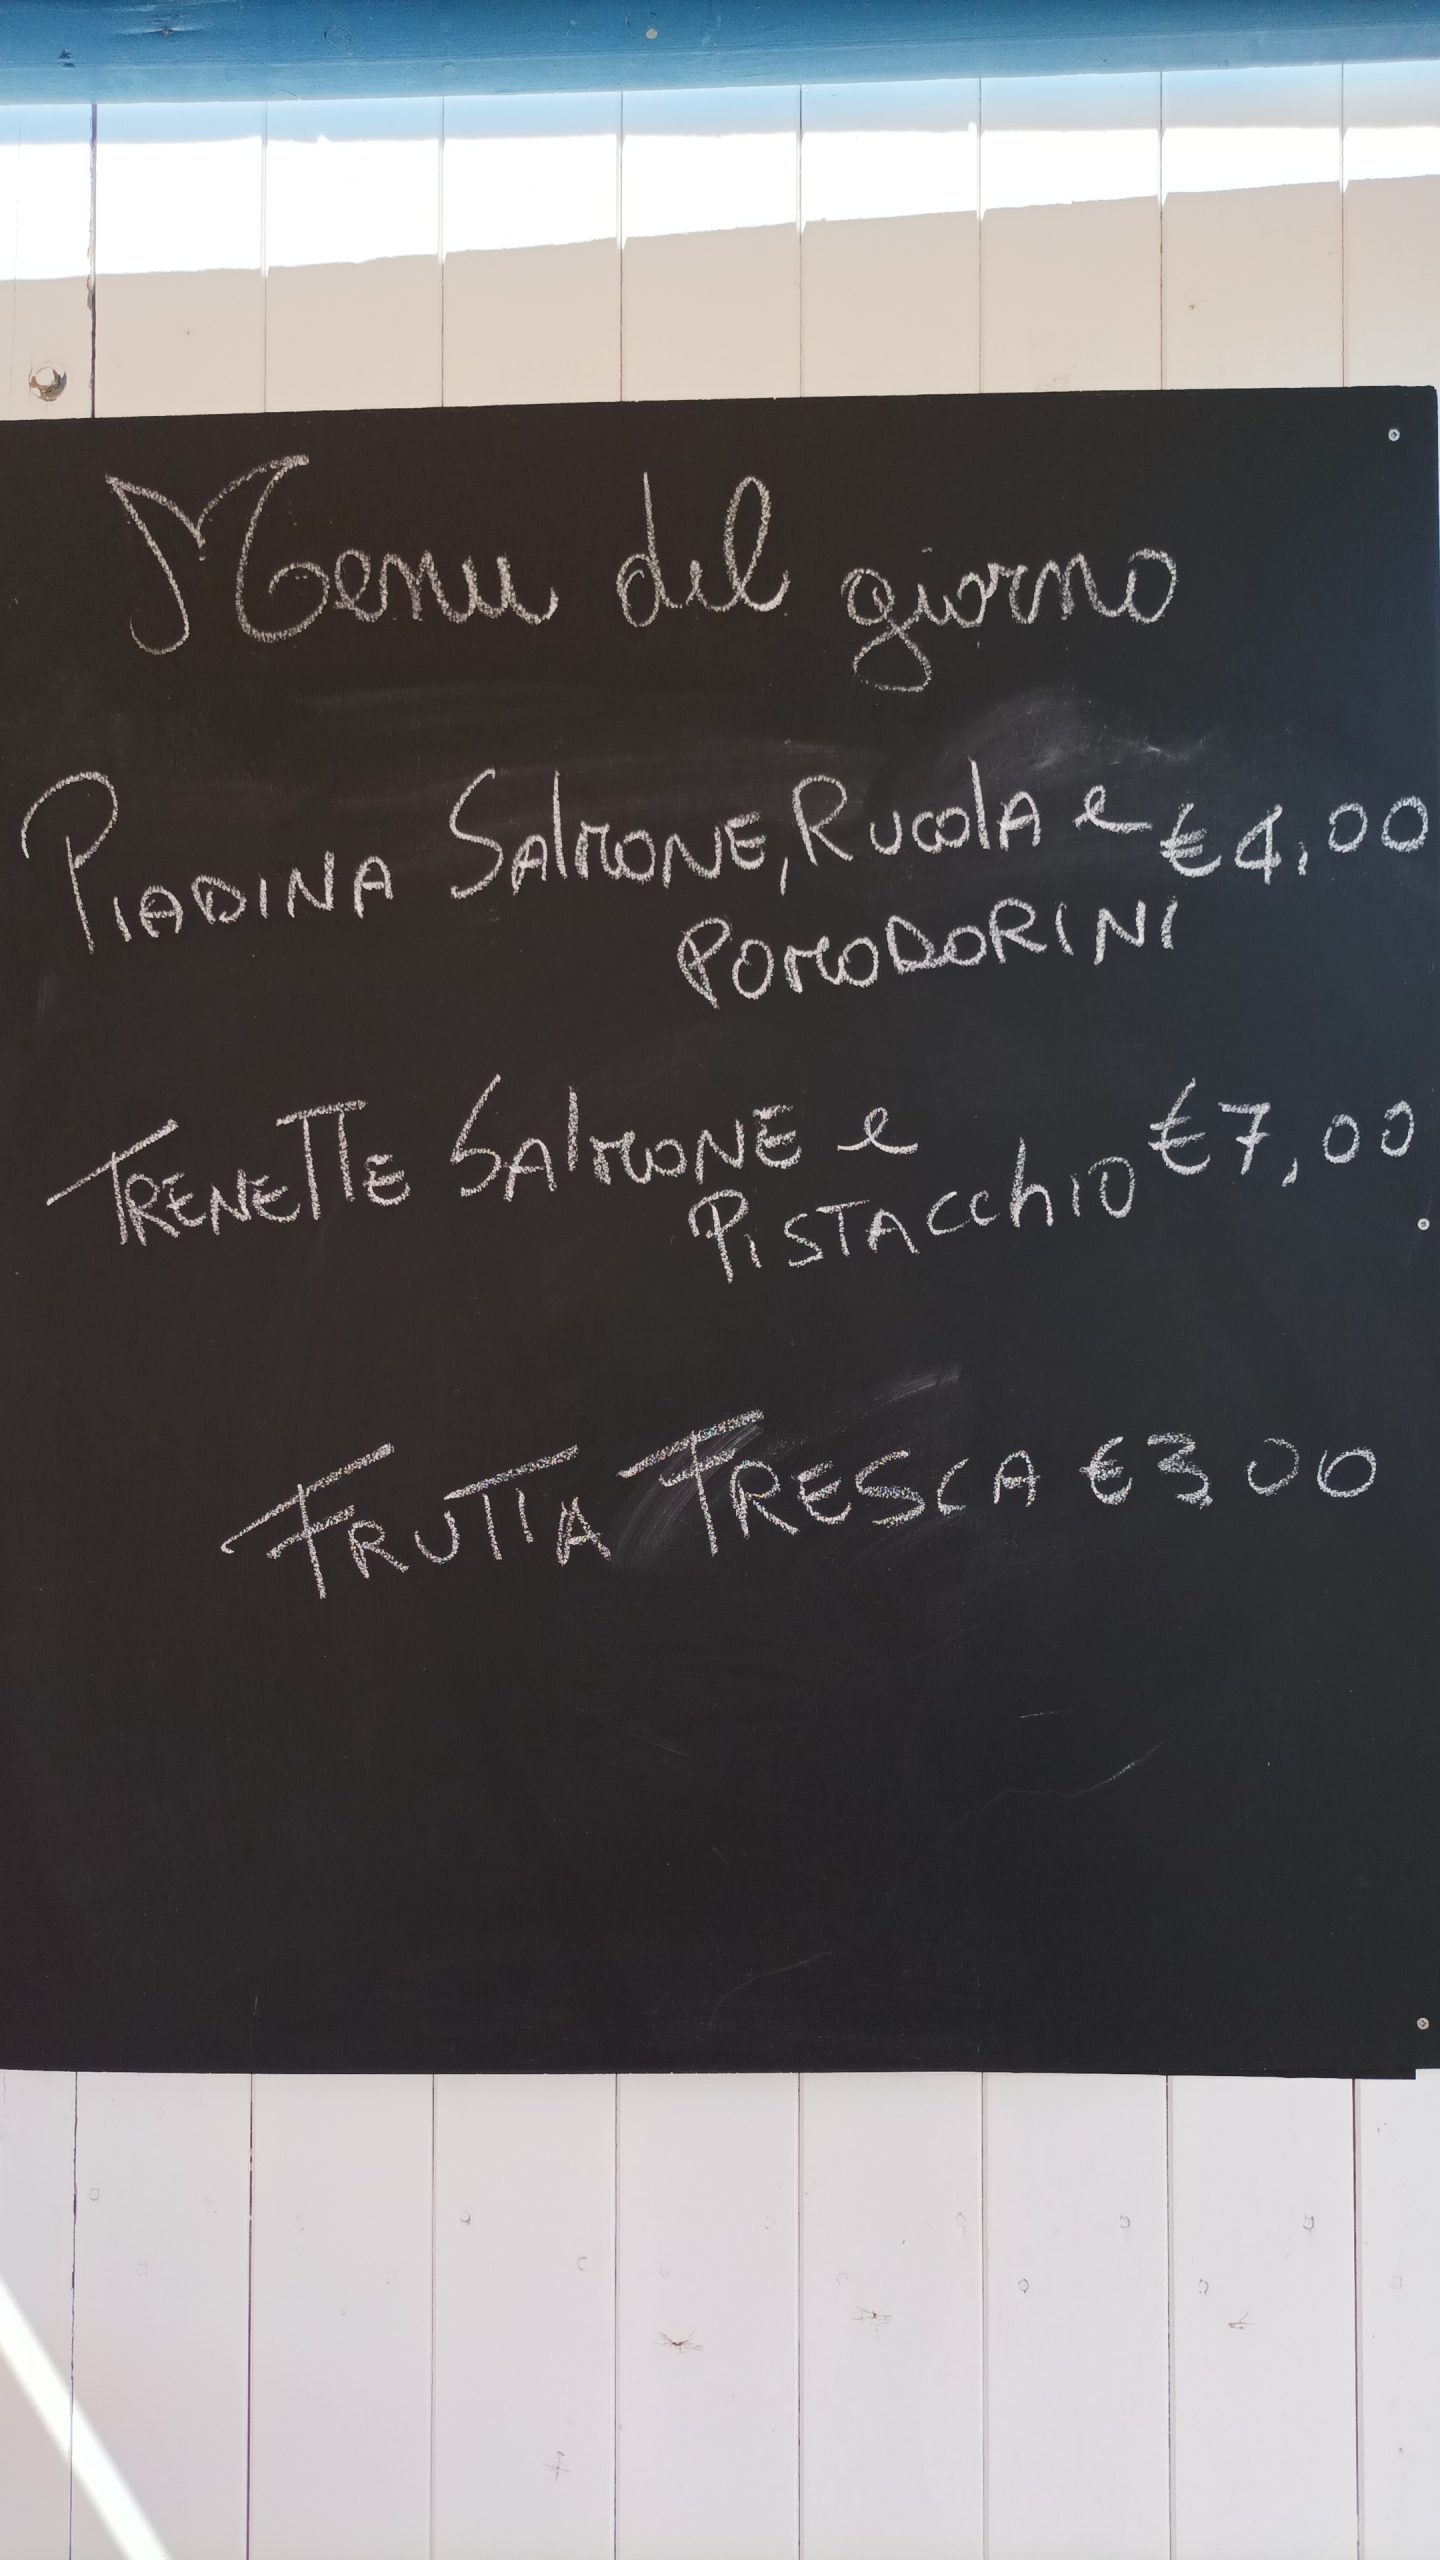 Menu del giorno
PIADINA SALMONE, RUCOLA e €4,00
POMODORINI
TRENETTE SALMONE e €7,00
PISTACCHIO
FRUTTA FRESCA €3,00